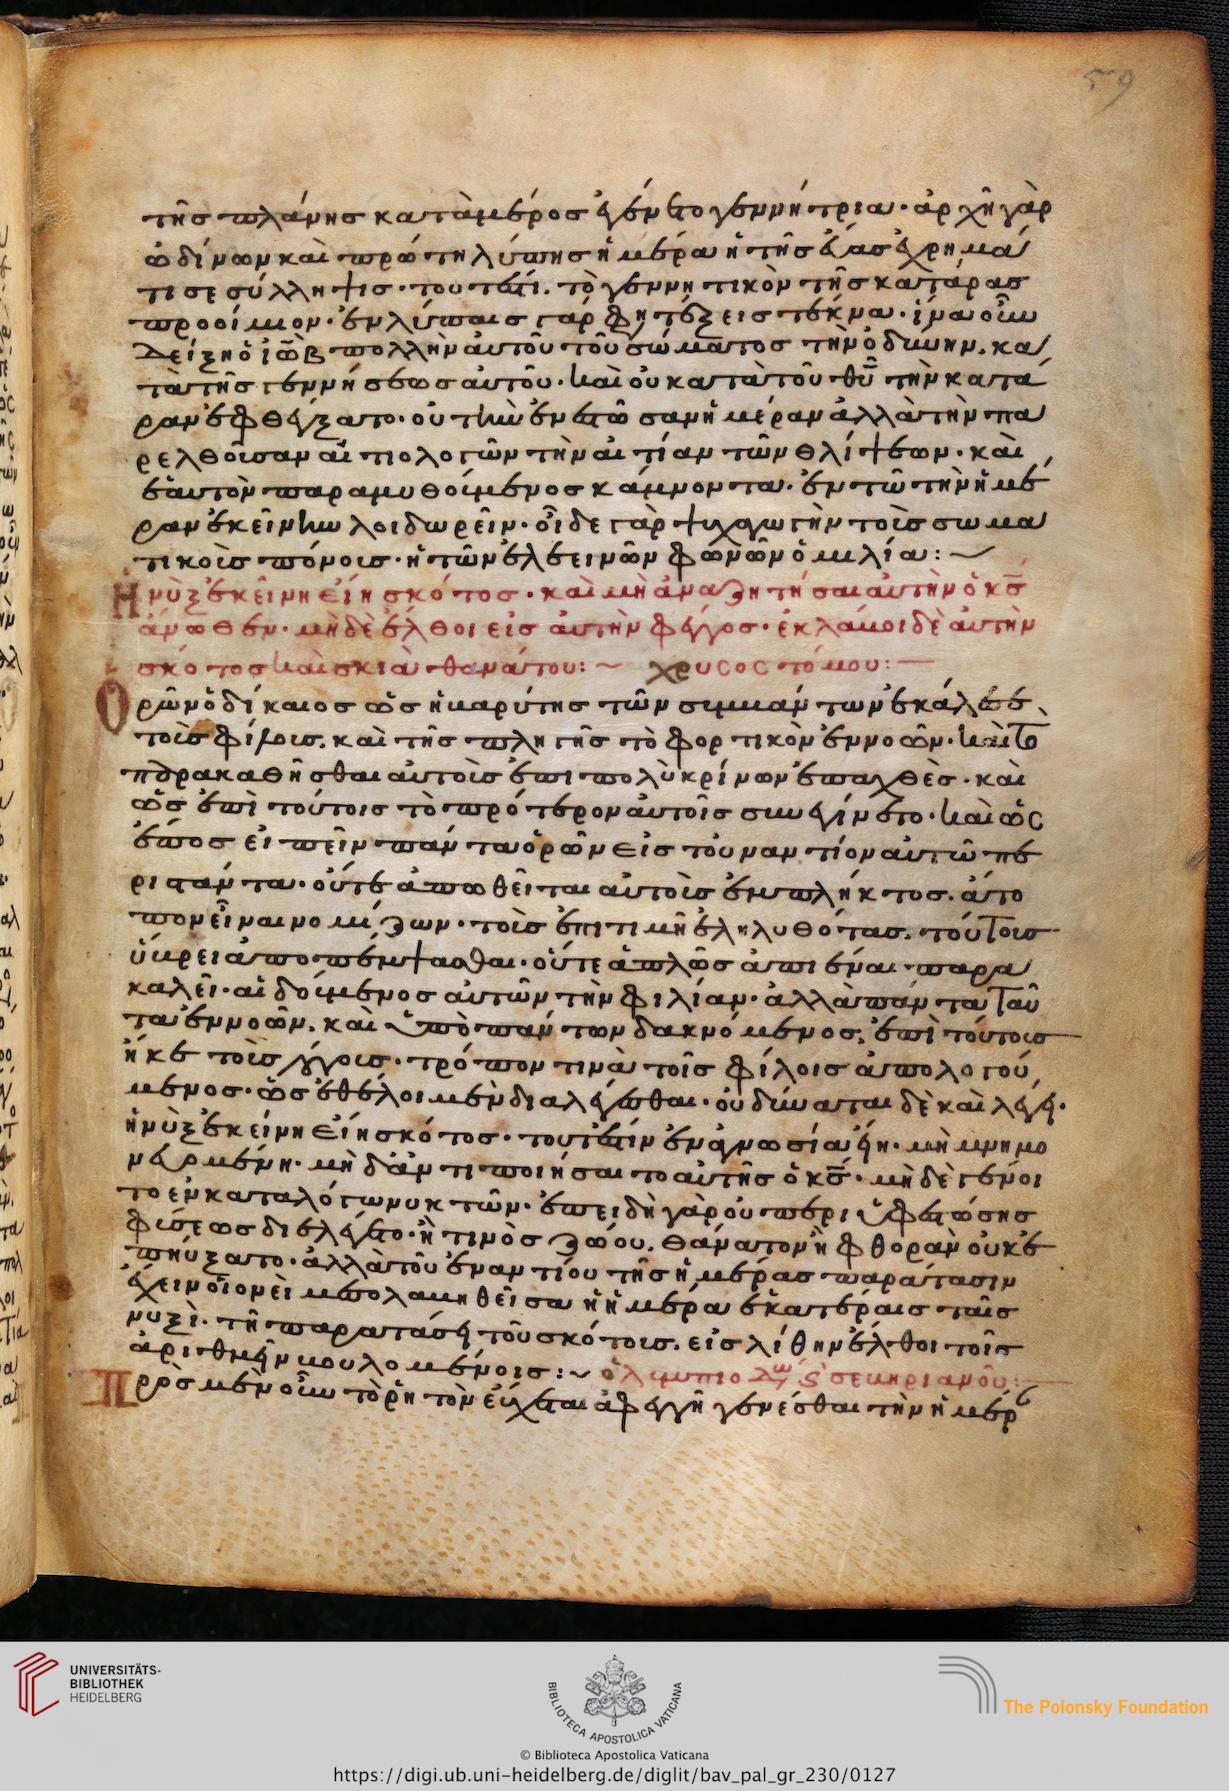 59
τῆς πλάνης κατὰ μέρος ἐγένετο γεννήτρια· ἀρχὴ γὰρ
ὠδίνων καὶ πρώτη λύπης ἡμέρα ἡ τῆς εὔας ἐχρημά
τισε σύλληψις· τουτέστι τὸ γεννητικὸν τῆς κατάρας
προοίμιον· ἐν λύπαις γάρ φη τέξεις τέκνα· ἵνα οὖν
δείξη ὁ ἰὼβ πολλὴν αὐτοῦ τοῦ σώματος τὴν ὀδύνην· κα
τὰ τῆς γεννήσεως αὐτοῦ· καὶ οὐ κατὰ τοῦ θῡ τὴν κατά
ραν ἐφθέγξατο· οὐ τὴν ἐνεστῶσαν ἡμέραν ἀλλὰ τὴν πα
ρελθοῦσαν αἰτιολογῶν τὴν αἰτίαν τῶν θλίψεων· καὶ
ἑαυτὸν παραμυθούμενος κάμνοντα· ἐν τῶ τὴν ἡμέ
ραν ἐκείνην λοιδωρεῖν· οἶδε γὰρ ψυχαγωγὴν τοῖς σωμα
τικοῖς πόνοις· ἡ τῶν ἐλεεινῶν φωνῶν ὁμιλία:~
Η νὺξ ἐκείνη εἴη σκότος· καὶ μὴ ἀναζητήσαι αὐτὴν ὁ κς̄
ἄνωθεν· μὴδὲ ἔλθοι εἰς αὐτὴν φέγγος· ἐκλάβοι δὲ αὐτὴν
σκότος καὶ σκιὰ θανάτου:~ χρυσοστόμου:
Ορῶν ὁ δίκαιος ὡς ἡ βαρύτης τῶν συμβάντων ἐκάλεσε
τοῖς φίλοις· καὶ τῆς πληγῆς τὸ φορτικὸν ἐννοῶν· καὶ τὸ
παρακαθῆσθαι αὐτοῖς ἐπιπολὺ κρίνων ἐπαχθὲς· καὶ
ὡς ἐπὶ τούτοις τὸ πρότερον αὐτοῖς συνεγίνετο· καὶ ὡς
ἔπος εἰπεῖν πάντα ὁρῶν εἰς τοὐναντίον αὐτῶ πε
ριστάντα· οὔτε ἀπωθεῖται αὐτοῖς ἐμπλήκτος· ἄτο
πον εἶναι νομίζων· τοῖς ἐπιτιμῆ ἐληλυθότας· τούτοις
ὕβρει ἀποπέμψασθαι· οὔτε ἁπλῶς ἀπιέναι παρα
καλεῖ· αἰδούμενος αὐτῶν τὴν φιλίαν· ἀλλὰ πάντα ταῦ
τα ἐννοῶν· καὶ ὑπὸ πάντων δακνόμενος· ἐπὶ τούτοις
ἧκε τοῖς λόγοις· τρόπον τινὰ τοῖς φίλοις ἀπολογού
μενος· ὡς ἐθέλοι μὲν διαλέγεσθαι· οὐ δύναται δὲ καὶ λέγει·
ἡ νὺξ ἐκείνη εἴη σκότος· τουτέστιν ἐν ἀγνωσία εἴη· μὴ μνημο
νευομένη· μὴδ' ἄν τι ποιήσαιτο αὐτῆς ὁ κς̄· μὴ δὲ γένοι
το ἐν καταλόγω νυκτῶν· ἐπειδὴ γὰρ οὐ περὶ ὑφεστώσης
φύσεως διελέγετο· ἤ τινὸς ζώου· θάνατον ἢ φθορὰν οὐκ ἐ
πηύξατο· ἀλλὰ τοῦ ἐναντίου τῆς ἡμέρας παράστασιν
ἔχειν οἱονεὶ μεσολαβηθεῖσα ἡ ἡμέρα ἑκατέραις ταῖς
νυξὶ· τῆ παραστάσει τοῦ σκότους· εἰς λίθην ἔλθοι τοῖς
ἀριθμεῖν βουλομένοις:~ ὀλυμπιοδώ, ς σευηριανοῦ:
Πρὸς μὲν οὖν τὸ ῥητὸν εὔχεται ἀφεγγῆ γενέσθαι τὴν ἡμέρ
UNIVERSITÄTS-
BIBLIOTHEK
HEIDELBERG
BIBLIOTECA APOSTOLICA VATICANA
The Polonsky Foundation
© Biblioteca Apostolica Vaticana
https://digi.ub.uni-heidelberg.de/diglit/bav_pal_gr_230/0127